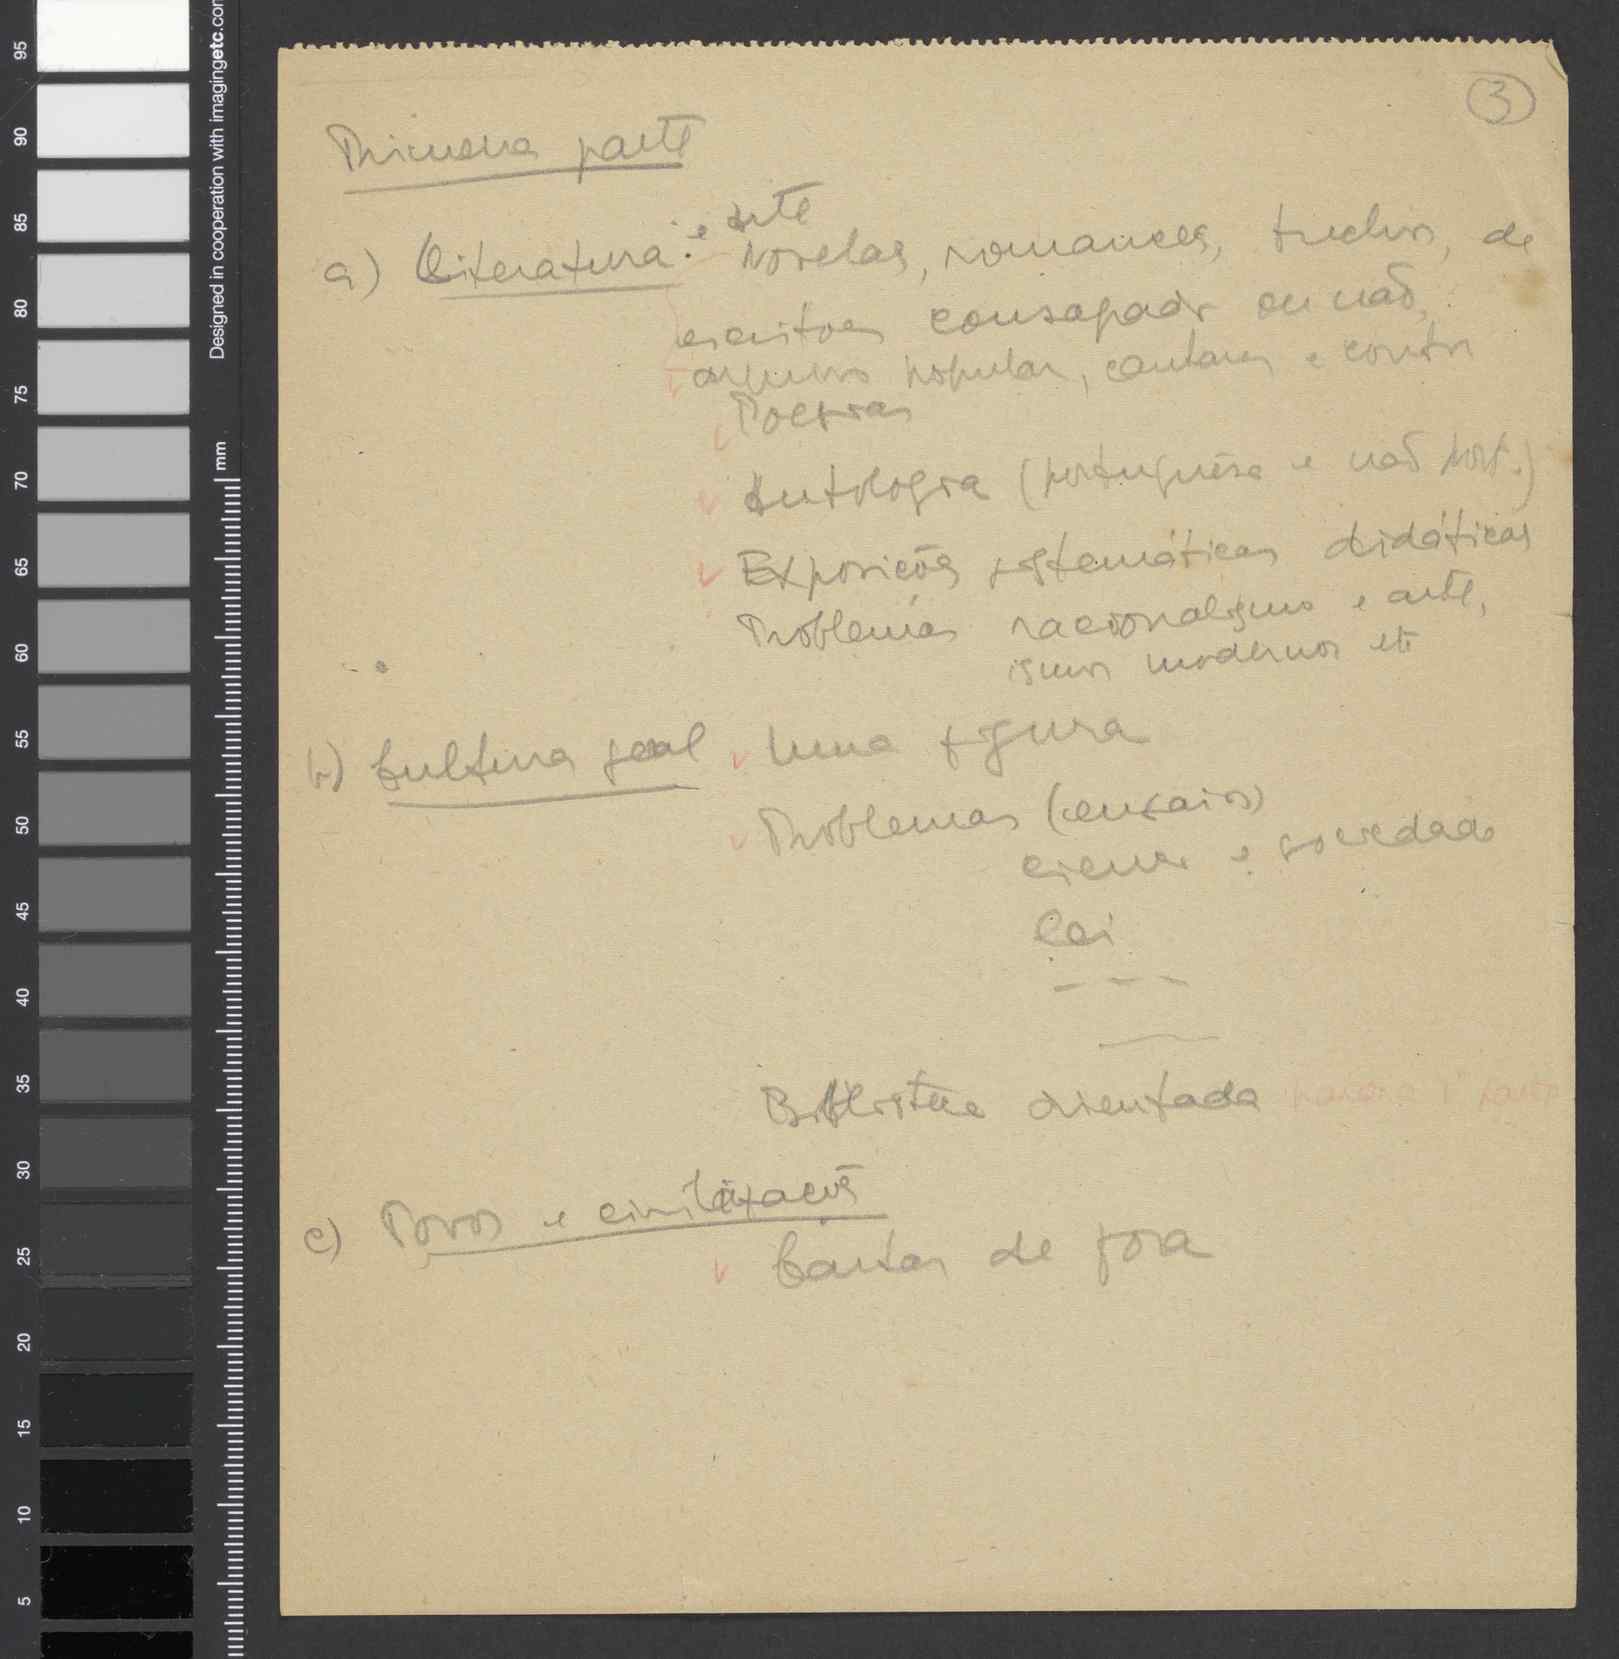 3
Primeira parte
a) Literatura: e Arte Novelas, romances, trechos, de
escritores consagrados ou não,
popular, cantares e contos
Poesias
Antologia (portuguesa e não port.)
Exposições sistemáticas didáticas
Problemas racionalismo e arte,
ismos modernos etc
b) Cultura geral Uma figura
Problemas (ensaios)
ciencia e sociedade
Lei
Biblioteca orientada para a 1ª parte
c) Povos e civilizações
Cartas de fora
95
90
85
80
75
70
65
60
55
50
45
40
35
30
25
20
15
10
5
mm
Designed in cooperation with imagingetc.com